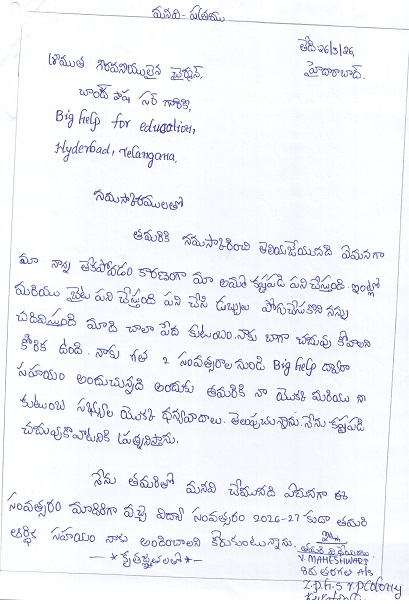 మనవి- పత్రము
తేదీ 26/3/26
హైదరాబాద్.
శ్రీయుత గౌరవనీయులైన ఛైర్మన్,
చాంద్ పాష సర్ గారికి,
Big help for education,
Hyderbad, Telangana.
నమస్కారములతో
తమరికి నమస్కరించి తెలియజేయునది ఏమనగా
మా నాన్న లేకపోవడం కారణంగా మా అమ్మ కష్టపడి పని చేస్తుంది. ఇంట్లో
మరియు బైట పని చేస్తుంది పని చేసి డబ్బులు పోగుచేసుకొని నన్ను
చదివిస్తుంది మాది చాలా పేద కుటుంబం. నాకు బాగా చదువు కోవాలని
కోరిక ఉంది. నాకు గత 2 సంవత్సరాల నుండి Big help ద్వారా
సహాయం అందుచున్నది అందుకు తమరికి నా యొక్క మరియు నా
కుటుంబ సభ్యుల యొక్క ధన్యవాదాలు. తెలుపుచున్నాను. నేను కష్టపడి
చదువుకోవటానికి ప్రయత్నిస్తాను.
నేను తమరితో మనవి చేయునది ఏమనగా ఈ
సంవత్సరం మాదిరిగా వచ్చే విద్యా సంవత్సరం 2026-27 కుడా తమరి
ఆర్థిక సహాయం నాకు అందించాలని కోరుకుంటున్నాను.
—*కృతజ్ఞతలతో*—
తమరి విధేయురాలు
V. MAHESHWARI
8వ తరగతి A/S
Z.p.h.s v.p colony